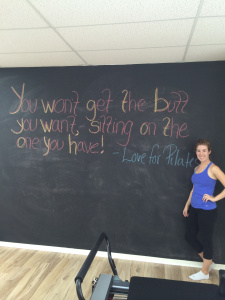 You won't get the butt
you want, sitting on the
one you have!
- Love for Pilates